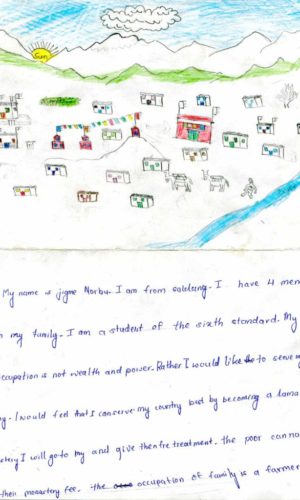 Sun
My name is jigme Norbu. I am from
I have 4 mem
my family. I am a student of the sixth standard. My
ccupation is not wealth and power. Rather I would like to serve my
I would feel that I can serve my country best by becoming a lama
I will go to my and give then fre treatment. the poor canno
their monastery fee. the occupation of family is a farmer